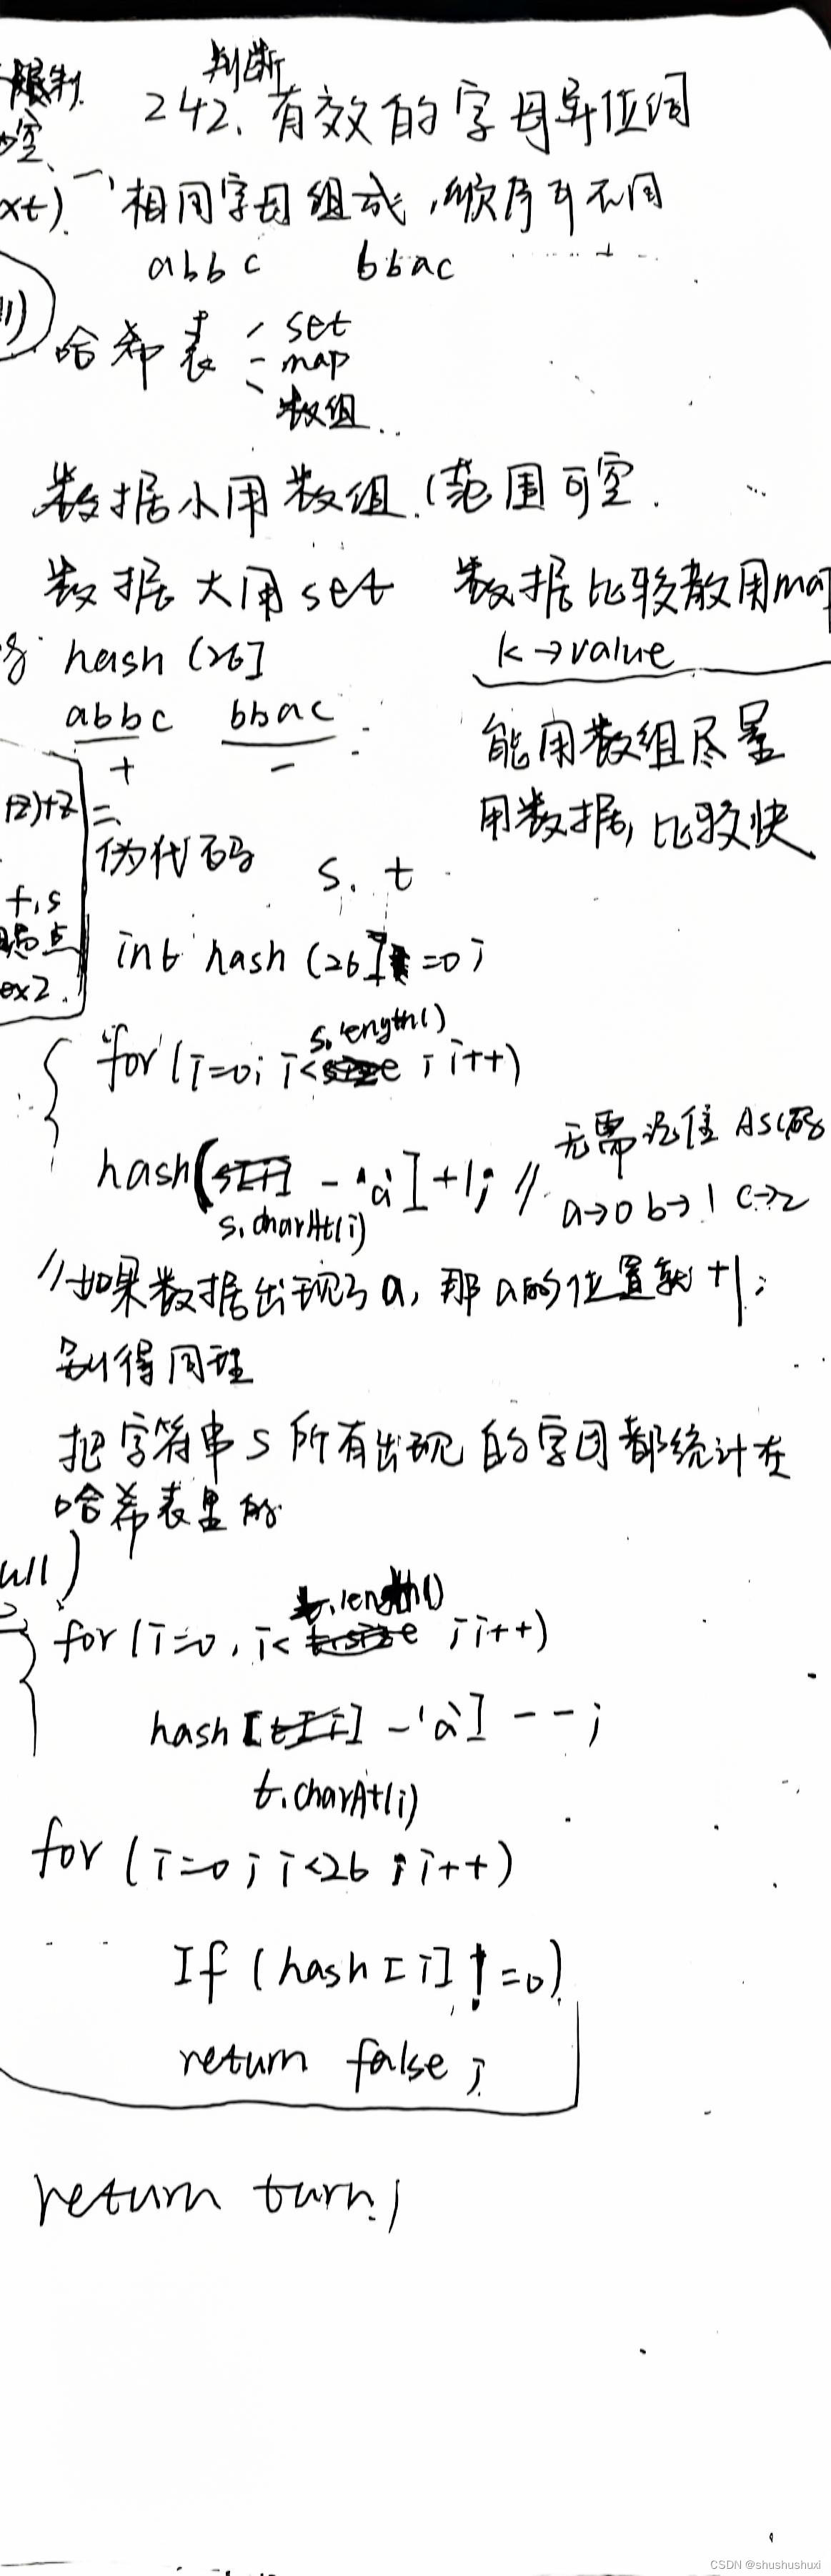 限制.
判断
242. 有效的字母异位词
空.
xt). 一、相同字母组成,顺序可不同
abbc bbac
哈希表 set
map
数组..
数据小用数组.(范围可空.
数据大用set 数据比较散用map
hash (26] k→value
abbc bbac
+ -
能用数组尽量
用数据,比较快
二、
伪代码 s. t
f,s
ex2.
int hash (26] =0;
s.length()
for(i=0; i< ; i++)
无需记住ASC码
hash[ - 'a'] +1; //
s.charAt(i) a→0 b→1 c→2
//如果数据出现了a,那a的位置就+1;
别得同理
把字符串s所有出现的字母都统计在
哈希表里的
ull)
t.length()
for(i=0, i< ;i++)
hash[ - 'a'] --;
t.charAt(i)
for (i=0; i<26; i++)
If (hash[i] !=0)
return false;
return turn;
CSDN @shushushuxi